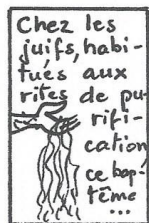 Chez les
juifs, habi-
tués aux
rites de pu-
rifi-
cation
ce bap-
tême
...